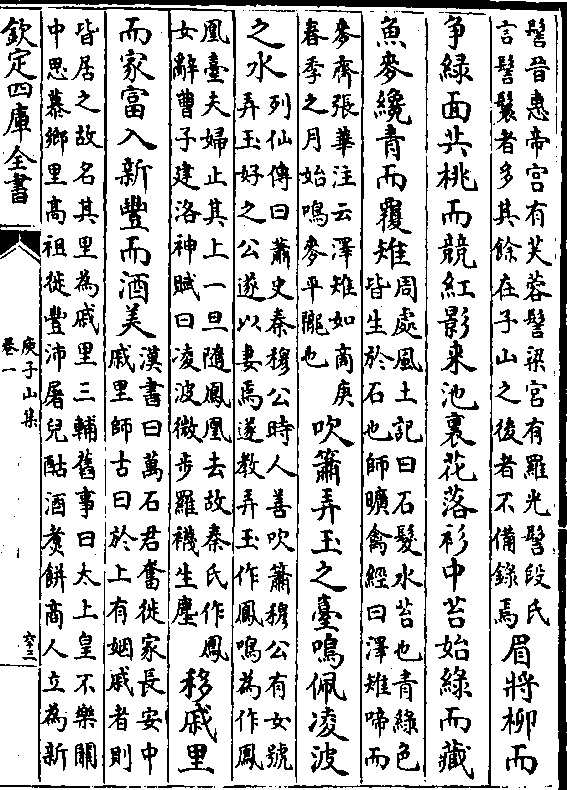 髻晉惠帝宫有芙蓉髻梁宫有羅光髻段氏
言髻鬟者多其餘在子山之後者不備錄焉
眉將柳而
争緑面共桃而競紅影来池裏花落衫中苔始綠而藏
魚麥纔青而覆雉
周處風土記曰石髮水苔也青綠色
皆生於石也師曠禽經曰澤雉啼而
麥齊張華注云澤雉如商庚
春季之月始鳴麥平隴也
吹簫弄玉之臺鳴佩凌波
之水
列仙傳曰蕭史秦穆公時人善吹簫穆公有女號
弄玉好之公遂以妻焉遂教弄玉作鳳鳴為作鳳
凰臺夫婦止其上一旦隨鳳凰去故秦氏作鳳
女辭曹子建洛神賦曰凌波微步羅襪生塵
移戚里
而家富入新豐而酒美
漢書曰萬石君奮徙家長安中
戚里師古曰於上有姻戚者則
皆居之故名其里為戚里三輔舊事曰太上皇不樂關
中思慕鄉里高祖徙豐沛屠兒酤酒煑餅商人立為新
欽定四庫全書
庾子山集
卷一
六三